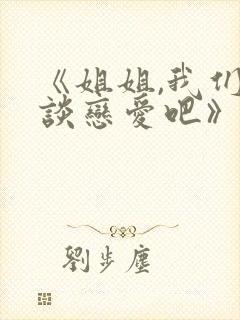 《姐姐,我们
談戀愛吧》
劉步塵